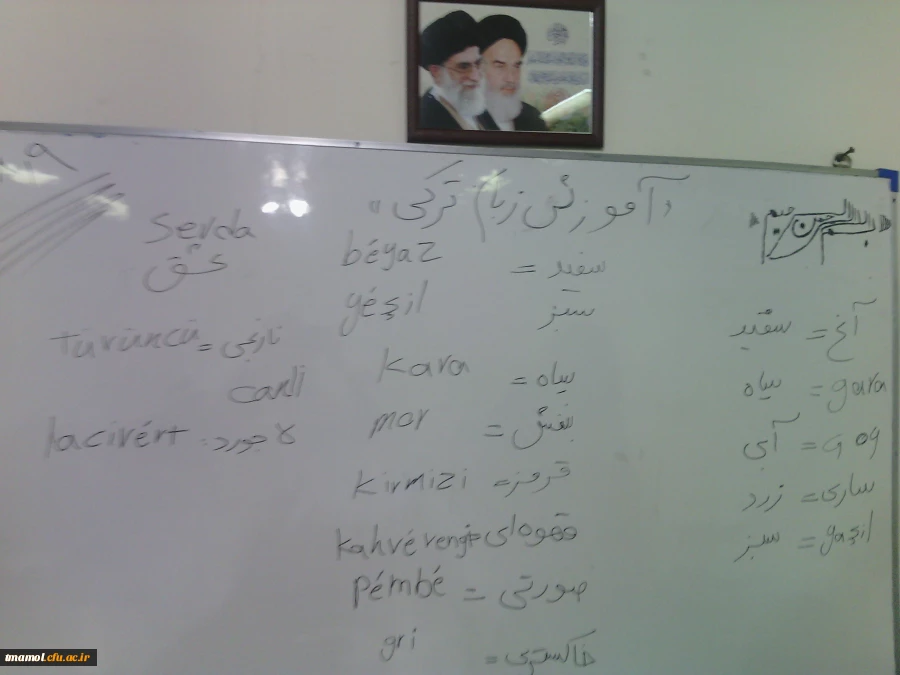 بسم الله الرحمن الرحیم
«آموزش زبان ترکی»
۹
آغ = سفید
gara = سیاه
gog = آبی
ساری = زرد
yaşil = سبز
سفید = béyaz
سبز yéşil
سیاه = kara
بنفش = mor
قرمز = kirmizi
قهوه‌ای kahvé rengi
صورتی = pémbé
خاکستری = gri
sevda
عشق
نارنجی = turuncu
canli
لاجورد: lacivért
tmamol.cfu.ac.ir